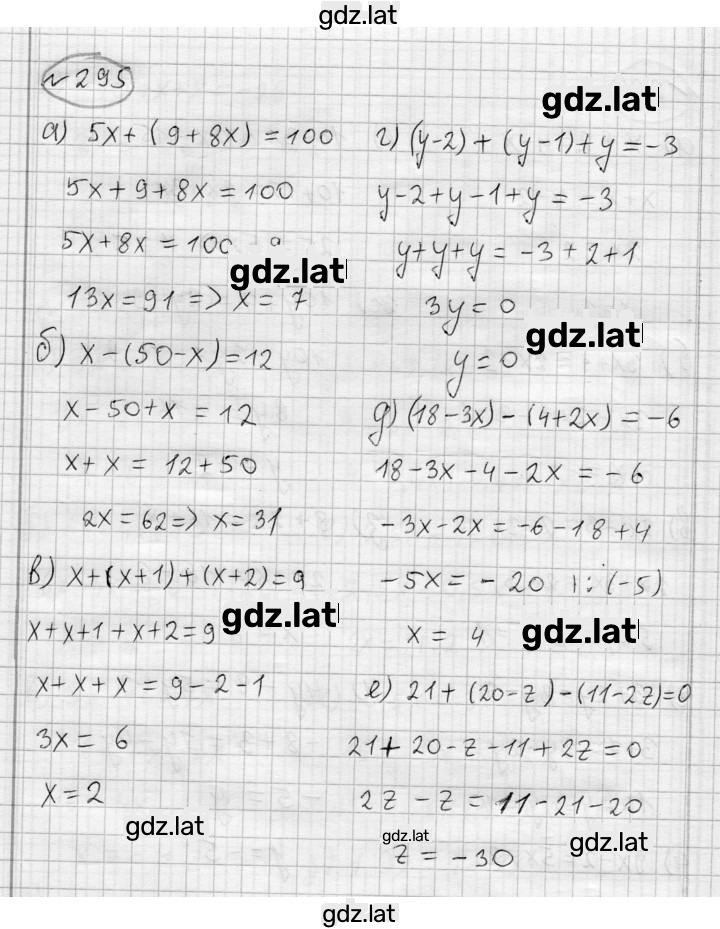 gdz.lat
№ 295
gdz.lat
а) 5x + (9 + 8x) = 100
5x + 9 + 8x = 100
5x + 8x = 100
gdz.lat
13x = 91 => x = 7
б) x - (50 - x) = 12
x - 50 + x = 12
x + x = 12 + 50
2x = 62 => x = 31
в) x + (x + 1) + (x + 2) = 9
x + x + 1 + x + 2 = 9
gdz.lat
x + x + x = 9 - 2 - 1
3x = 6
x = 2
gdz.lat
г) (y - 2) + (y - 1) + y = -3
y - 2 + y - 1 + y = -3
y + y + y = -3 + 2 + 1
3y = 0
gdz.lat
y = 0
д) (18 - 3x) - (4 + 2x) = -6
18 - 3x - 4 - 2x = -6
-3x - 2x = -6 - 18 + 4
-5x = -20 | : (-5)
x = 4
gdz.lat
е) 21 + (20 - z) - (11 - 2z) = 0
21 + 20 - z - 11 + 2z = 0
2z - z = 11 - 21 - 20
gdz.lat
z = -30
gdz.lat
gdz.lat